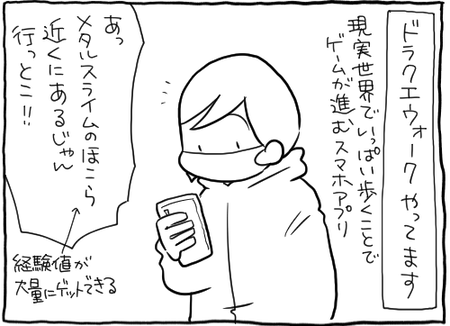 ドラクエウォークやってます
現実世界でいっぱい歩くことで
ゲームが進むスマホアプリ
あっ
メタルスライムのほこら
近くにあるじゃん
行っとこ!!
経験値が
大量にゲットできる